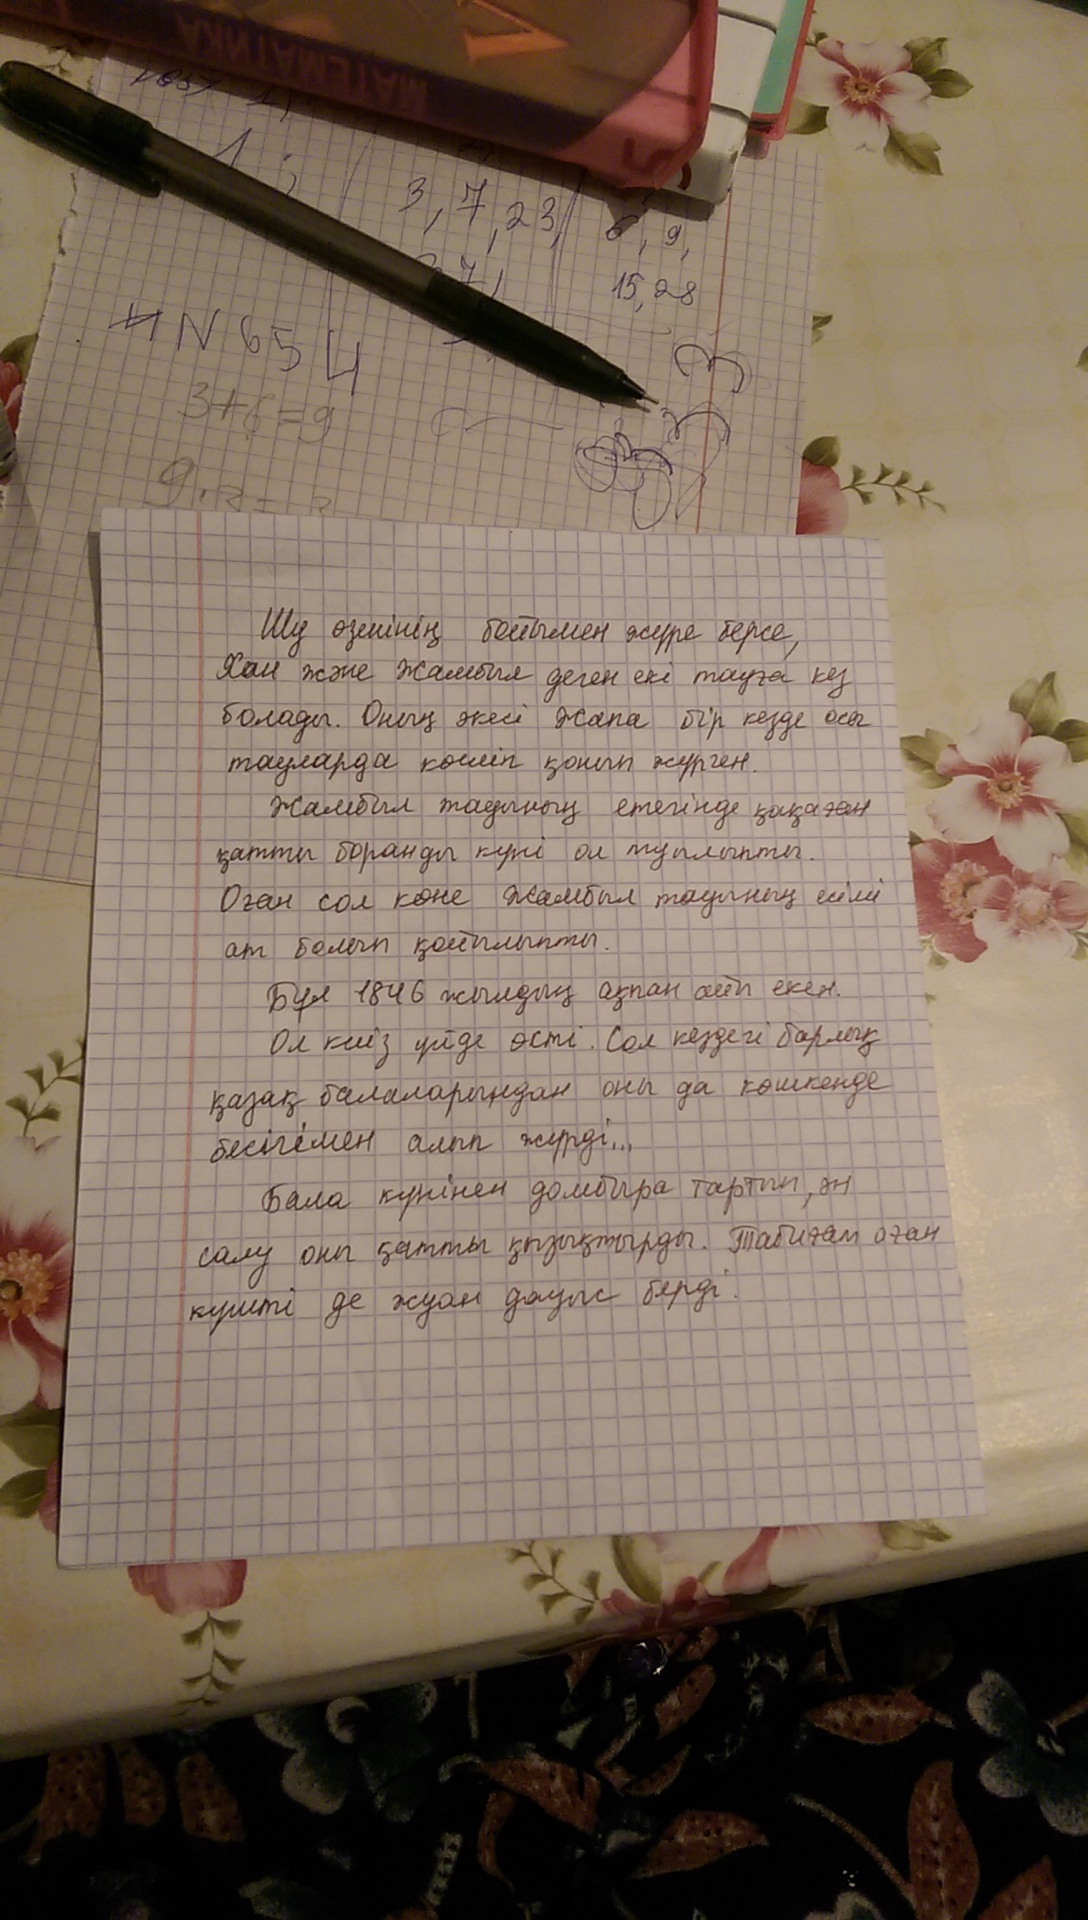 МАТЕМАТИКА
3, 7, 23, 6, 9,
15, 28
N 654
3+6=9
Шу өзенінің бойымен жүре берсе,
Хан және Жамбыл деген екі тауға кез
болады. Оның әкесі Жапа бір кезде осы
тауларда көшіп қонып жүрген.
Жамбыл тауының етегінде қақаған
қатты боранды күні ол туылыпты.
Оған сол көне Жамбыл тауының есімі
ат болып қойылыпты.
Бұл 1846 жылдың ақпан айы екен.
Ол киіз үйде өсті. Сол кездегі барлық
қазақ балаларындан оны да көшкенде
бесігімен алып жүрді...
Бала күнінен домбыра тартып, ән
салу оны қатты қызықтырды. Табиғат оған
күшті де жуан дауыс берді.